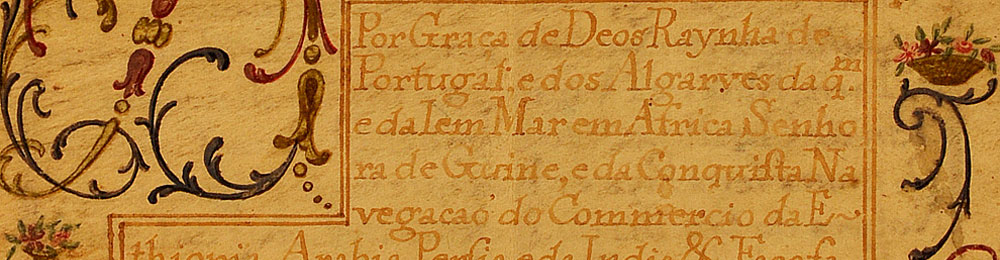 Por Graça de Deos Raynha de
Portugal, e dos Algarves daq.m
e dalem Mar em Africa Senho
ra de Guine, e da Conquista Na
vegacaõ do Commercio da E~
thiopia Arabia Persia e da India &